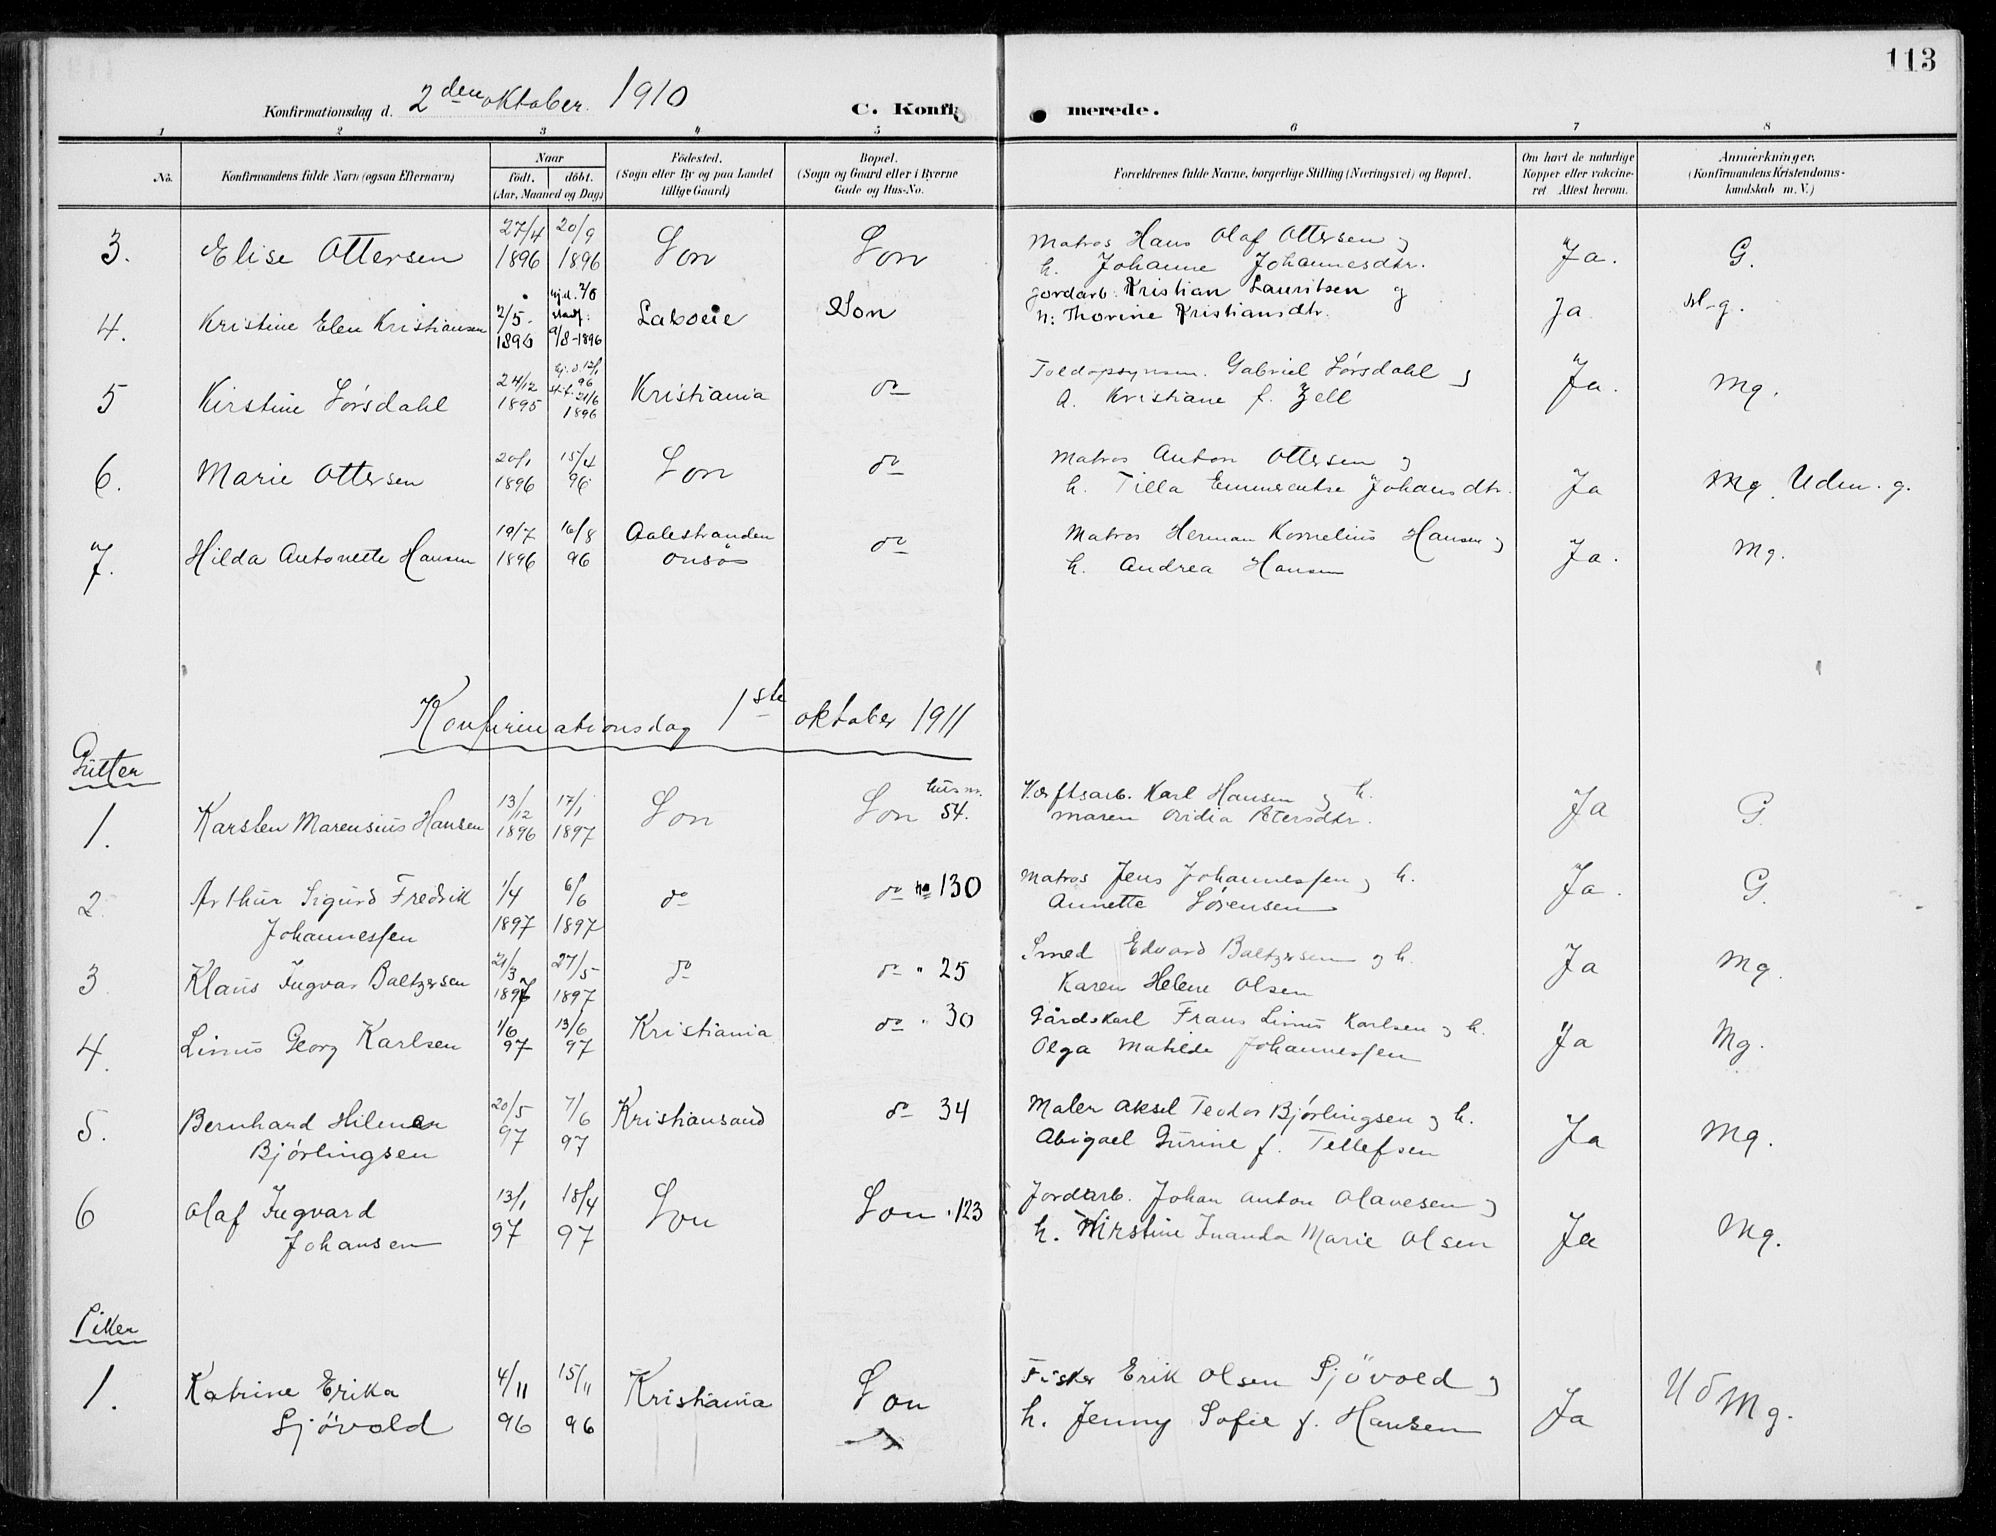 113
Konfirmationsdag d. 2den oktober 1910 C. Konfirmerede.
1 2 3 4 5 6 7 8
No. Konfirmandens fulde Navn (ogsaa Efternavn) Naar födt. döbt. (Aar, Maaned og Dag) Födested. (Sogn eller By og paa Landet tillige Gaard) Bopæl. (Sogn og Gaard eller i Byerne Gade og Hus-No. Forældrenes fulde Navne, borgerlige Stilling (Næringsvei) og Bopæl. Om havt de naturlige Kopper eller vakcineret Attest herom. Anmærkninger. (Konfirmandens Kristendomskundskab m. V.)
3. Elise Ottersen 27/4 1896 20/9 1896 Son Son Matros Hans Olaf Ottersen og h. Johanne Johannesdtr. Ja. G.
4. Kristine Elen Kristiansen 2/5 1896 hjd. 7/6 stadf: 9/8-1896 Laboeie Son Jordarb: Kristian Lauritsen og h: Thorine Kristiansdtr. Ja M-g.
5 Kirstine Sørsdahl 24/12 1895 hj. d. 12/1 96 st. f. 21/6 1896 Kristiania do Toldopsynsm. Gabriel Sørsdahl og h. Kristiane f. Zell Ja. Mg.
6. Marie Ottersen 20/1 1896 15/4 96 Son do Matros Anton Ottersen og h. Tilla Emmerentse Johansdtr. Ja Mg. Uden. g.
7. Hilda Antonette Hansen 19/7 1896 16/8 96 Aalestranden Onsøs do Matros Herman Kornelius Hansen og h. Andrea Hansen Ja. Mg.
Konfirmationsdag 1ste oktober 1911
Gutter
1. Karsten Marensius Hansen 13/12 1896 17/1 1897 Son Son husnr. 54. Værftsarb. Karl Hansen og h. Maren Ovidia Petersdtr. Ja G.
2 Arthur Sigurd Fredrik Johannessen 1/4 1897 6/6 1897 do do no 130 Matros Jens Johannessen og h. Annette Sørensen Ja. G.
3 Klaus Ingvar Baltzersen 21/3 1897 27/5 1897 do do " 25 Smed Edvard Baltzersen og h. Karen Helene Olsen Ja Mg.
4. Linus Georg Karlsen 1/6 97 13/6 97 Kristiania do " 30 Gårdskarl Frans Linus Karlsen og h. Olga Matilde Johannessen Ja Mg.
5. Bernhard Hilmer Bjørlingsen 20/5 97 7/6 97 Kristiansand do 34 Maler Aksel Teodor Bjørlingsen og h. Abigael Gurine f. Tellefsen Ja Mg.
6 Olaf Ingvard Johansen 13/1 97 18/4 97 Son Son . 123 Jordarb. Johan Anton Olavesen og h. Kirstine Inanda Marie Olsen Ja Mg.
Piker
1. Katrine Erika Sjövold 4/11 96 15/11 96 Kristiania Son Fisker Erik Olsen Sjövold og h. Jenny Sofie f. Hansen Ja Ud Mg.